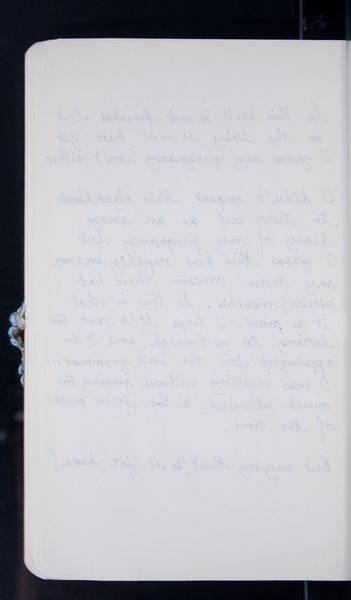 So this book is not finished but
as the baby is not here yet
I guess my pregnancy isn't either.
I didn't expect this sketchbook
to turn out as an
diary of my pregnancy but
I guess this has rapidly become
my main concern these last
weeks/months. So this is what
it is now. I hope it's not too
boring so as though and I do
appologize for the bad grammar...
I was writting without paying too
much attention to the form most
of the time.
But anyway that's it for here!